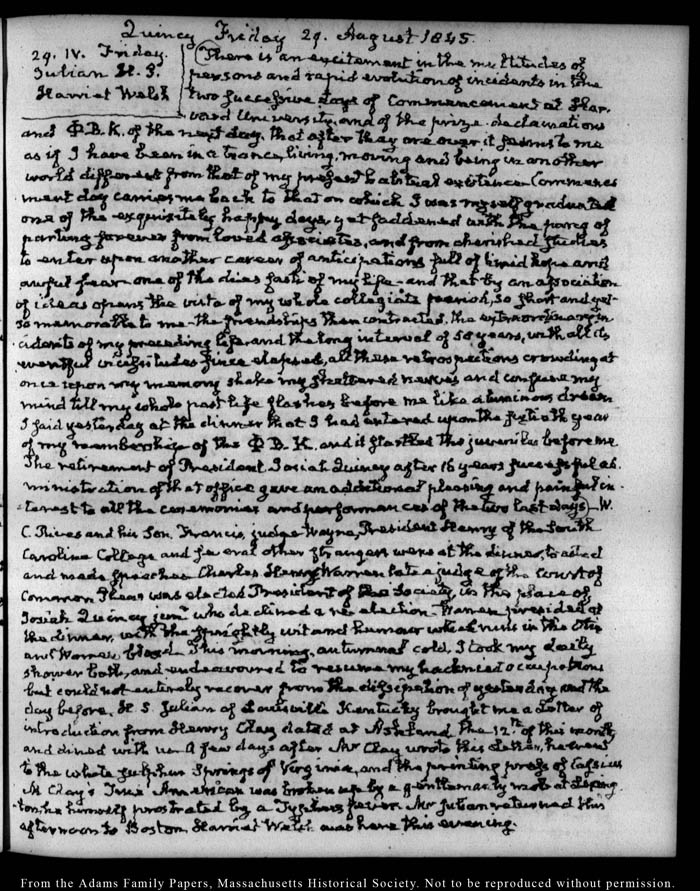 Quincy Friday 29. August 1845.
29. IV. Friday.
Julian H. S.
Harriet Welsh
There is an excitement in the multitudes of
persons and rapid evolution of incidents in the
two successive days of Commencement at Har-
vard University, and of the prize declamations
and Φ.B.K. of the next day, that after they are over it seems to me
as if I have been in a trance, living, moving and being in another
world different from that of my present habitual existence. Commence
ment day carries me back to that on which I was myself graduated
one of the exquisitely happy days, yet saddened with the pang of
parting forever from loved associates, and from cherished studies
to enter upon another career of anticipations full of timid hope and
awful fear one of the dies fasti of my life - and that by an association
of ideas opens the vista of my whole collegiate period, so short and yet
so memorable to me - the friendships then contracted, the extraordinary in-
cidents of my preceding life, and the long interval of 58 years, with all its
eventful vicissitudes since elapsed, all these retrospections crowding at
once upon my memory shake my shattered nerves and confuse my
mind till my whole past life flashes before me like a luminous dream
I said yesterday at the dinner that I had entered upon the sixtieth year
of my membership of the Φ B.K. and it startled the juveniles before me
The retirement of President Josiah Quincy after 16 years successful ad-
ministration of that office gave an additional pleasing and painful in-
terest to all the ceremonies and performances of the two last days - W.
C. Rives and his Son, Francis, judge Wayne, President Henry of the South
Carolina College and several other strangers were at the dinner, toasted
and made speeches Charles Henry Warren late a judge of the Court of
Common Pleas was elected President of the Society, in the place of
Josiah Quincy junr. who declined a re-election - Warren presided at
the dinner, with the sprightly wit and humour which runs in the Otis
and Warren blood. This morning, autumnal cold, I took my daily
shower bath, and endeavoured to resume my hacknied occupations
but could not entirely recover from the dissipation of yesterday and the
day before. H. S. Julian of Louisville Kentucky brought me a Letter of
introduction from Henry Clay dated at Ashland the 12th. of this month,
and dined with us. A few days after Mr Clay wrote this Letter, he went
to the white sulphur Springs of Virginia, and the printing press of Cassius
M Clay's True American was broken up by a gentlemanly mob at Lexing-
ton, he himself prostrated by a Typhus fever. Mr Julian returned this
afternoon to Boston. Harriet Welsh was here this evening.
From the Adams Family Papers, Massachusetts Historical Society. Not to be reproduced without permission.